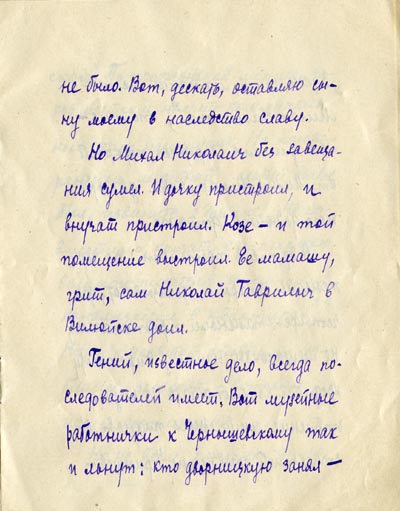 не было. Вот, дескать, оставляю сы-
ну моему в наследство славу.
Но Михал Николаич без завеща-
ния сумел. И дочку пристроил, и
внучат пристроил. Козе – и той
помещение выстроил. Ее мамашу,
грит, сам Николай Гаврилыч в
Вилюйске доил.
Гений, известное дело, всегда по-
следователей имеет. Вот музейные
работнички к Чернышевскому так
и льнут: кто дворницкую занял –